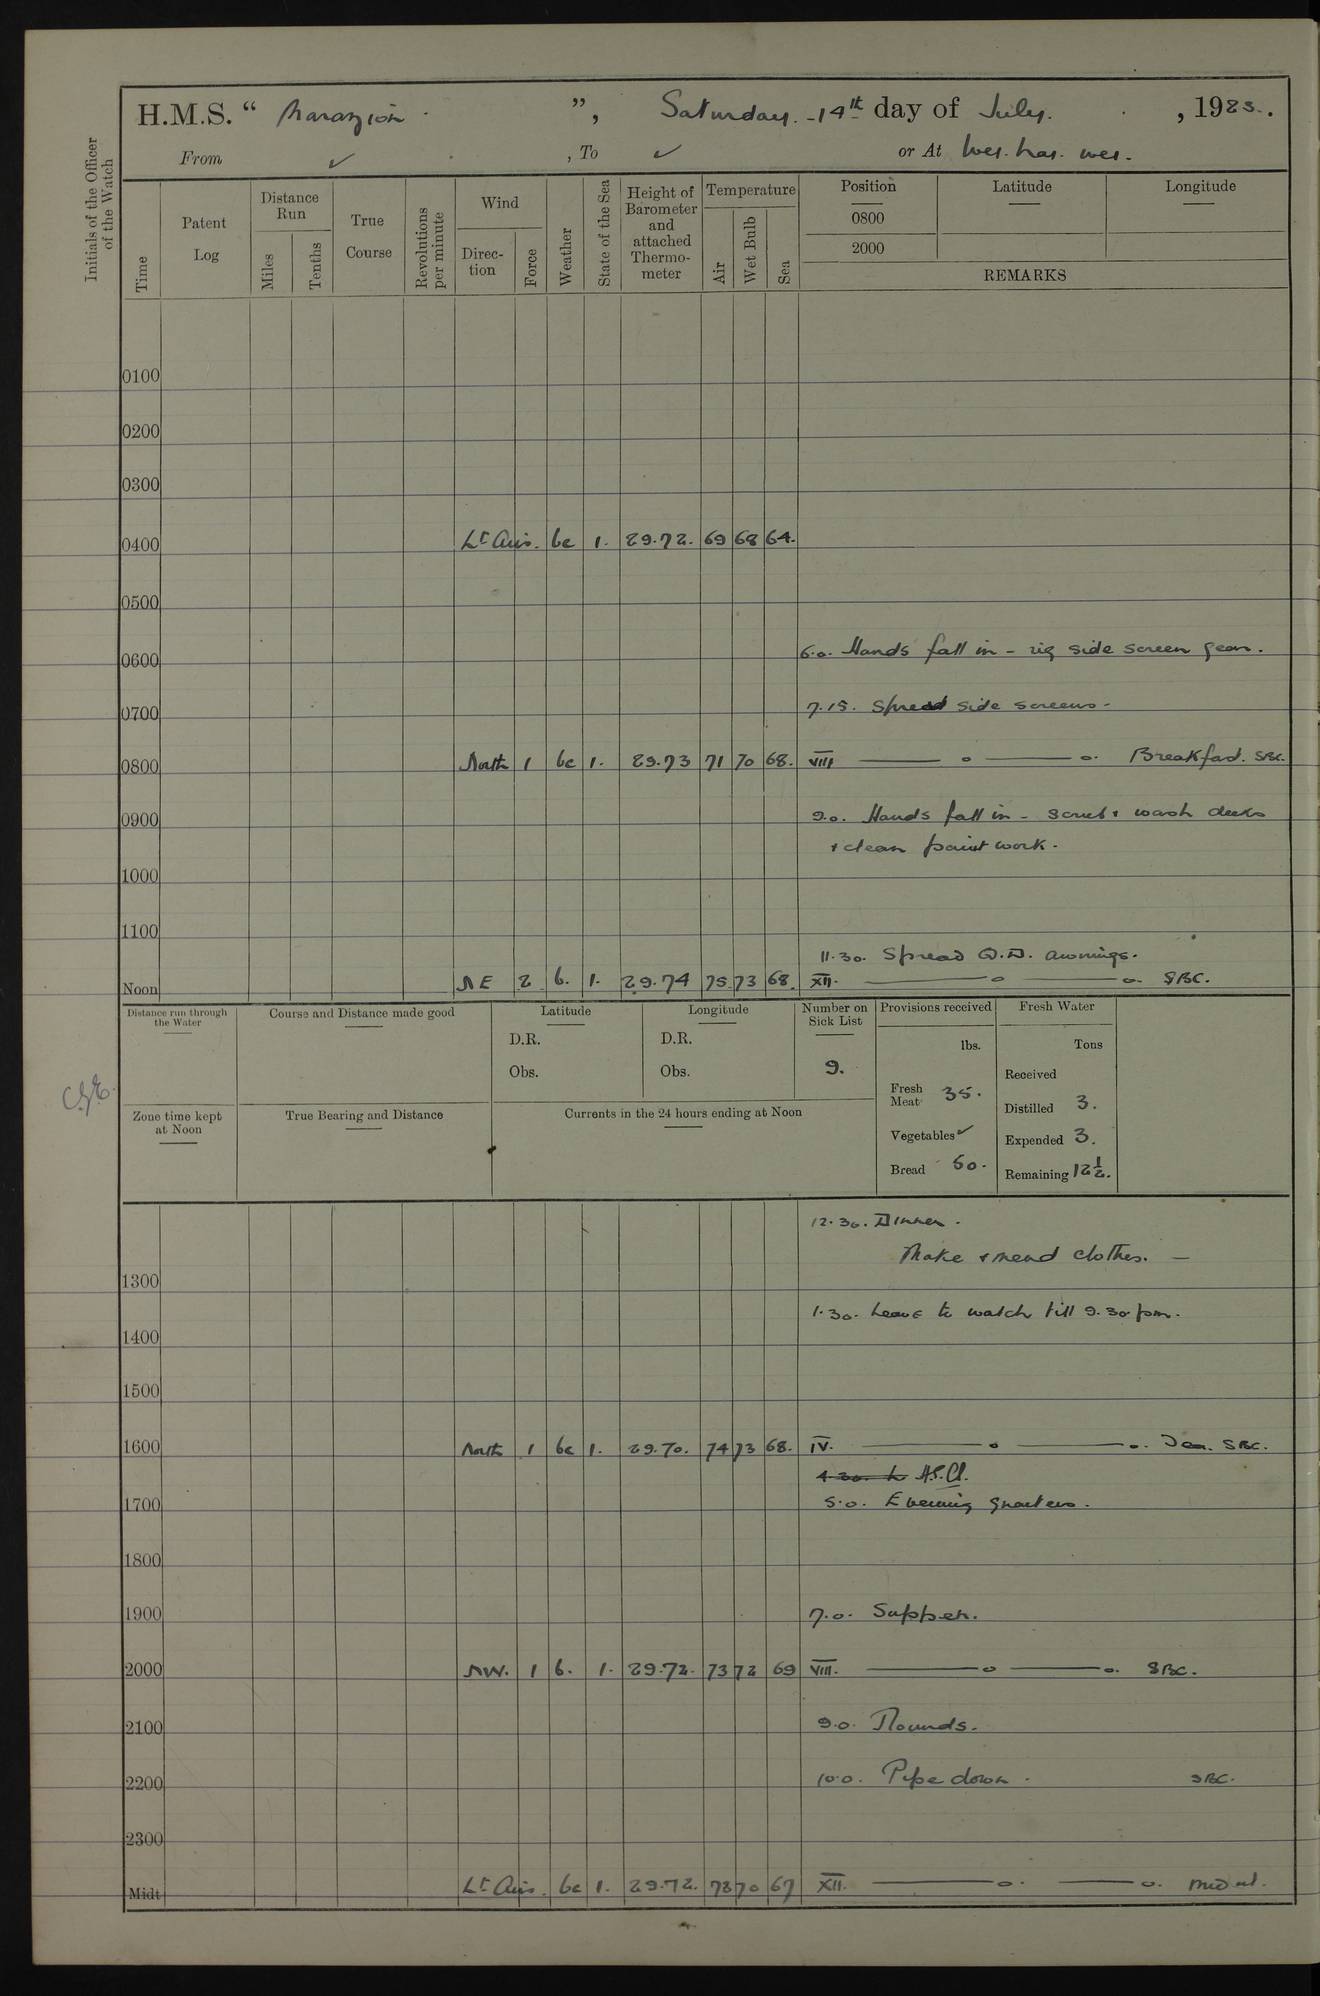 H.M.S. “ Marazion ”, Saturday. 14th day of July. , 1923.
From ✓ , To ✓ or At Wei. hai. wei.
Initials of the Officer of the Watch
Time
Patent Log
Distance Run
Miles
Tenths
True Course
Revolutions per minute
Wind
Direc-tion
Force
Weather
State of the Sea
Height of Barometer and attached Thermo-meter
Temperature
Air
Wet Bulb
Sea
Position Latitude Longitude
0800
2000
REMARKS
0100
0200
0300
0400 Lt Airs. bc 1. 29.72. 69 68 64.
0500
0600 6.0. Hands fall in - rig side screen gear.
0700 7.15. Spread side screens -
0800 North 1 bc 1. 29.73 71 70 68. VIII ——— o ——— o. Breakfast. SBC.
0900 9.0. Hands fall in - scrub & wash decks
& clean paint work.
1000
1100
11.30. Spread Q.D. awnings.
Noon NE 2 b. 1. 29.74 75 73 68. XII. ——— o ——— o. SBC.
Distance run through the Water
Course and Distance made good
Latitude
D.R.
Obs.
Longitude
D.R.
Obs.
Number on Sick List
9.
Provisions received
lbs.
Fresh Meat 35.
Vegetables ✓
Bread 50.
Fresh Water
Tons
Received
Distilled 3.
Expended 3.
Remaining 12½.
Zone time kept at Noon
True Bearing and Distance
Currents in the 24 hours ending at Noon
12.30. Dinner.
Make & mend clothes. —
1300
1.30. Leave to watch till 9.30 pm.
1400
1500
1600 North 1 bc 1. 29.70. 74 73 68. IV. ——— o ——— o. Tea. SBC.
1700 5.0. Evening quarters.
1800
1900 7.0. Supper.
2000 NW. 1 b. 1. 29.72. 73 72 69 VIII. ——— o ——— o. SBC.
2100 9.0. Rounds.
2200 10.0. Pipe down. SBC.
2300
Midt Lt Airs. bc 1. 29.72. 73 70 67 XII. ——— o. ——— o.